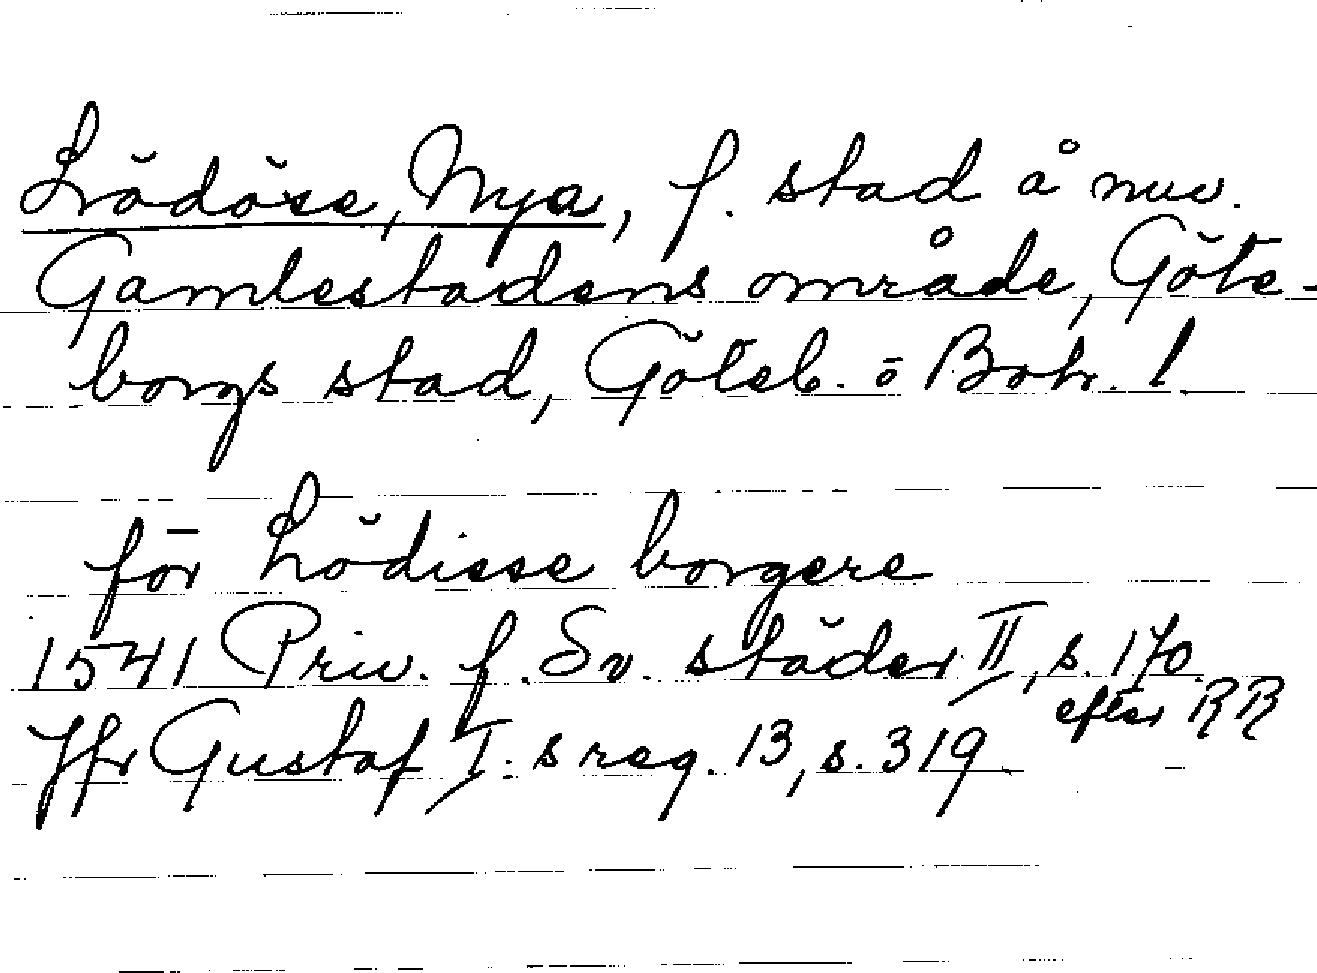 Lödöse, Nya, f. stad å nuv.
Gamlestadens område, Göte-
borgs stad, Göteb. o Boh. l
för Lödisse borgere
1541 Priv. f. Sv. städer II, s. 170
efter RR
Jfr Gustaf I:s reg. 13, s. 319